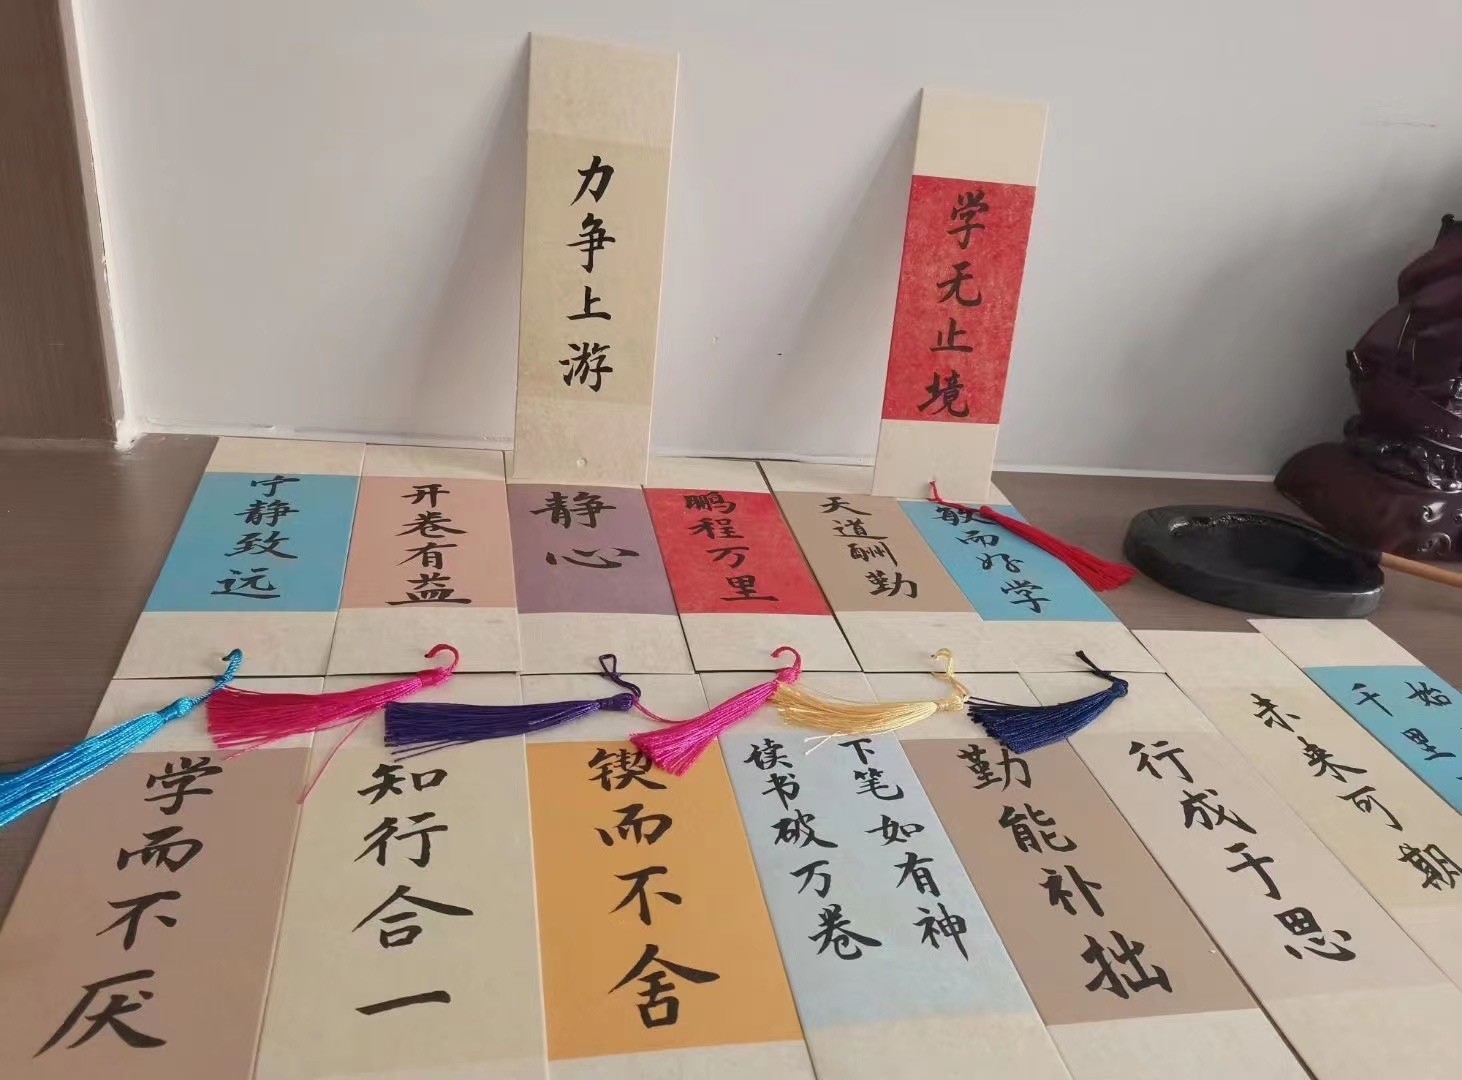 力争上游
学无止境
宁静致远
开卷有益
静心
鹏程万里
天道酬勤
敏而好学
学而不厌
知行合一
锲而不舍
读书破万卷
下笔如有神
勤能补拙
行成于思
未来可期
千里
始